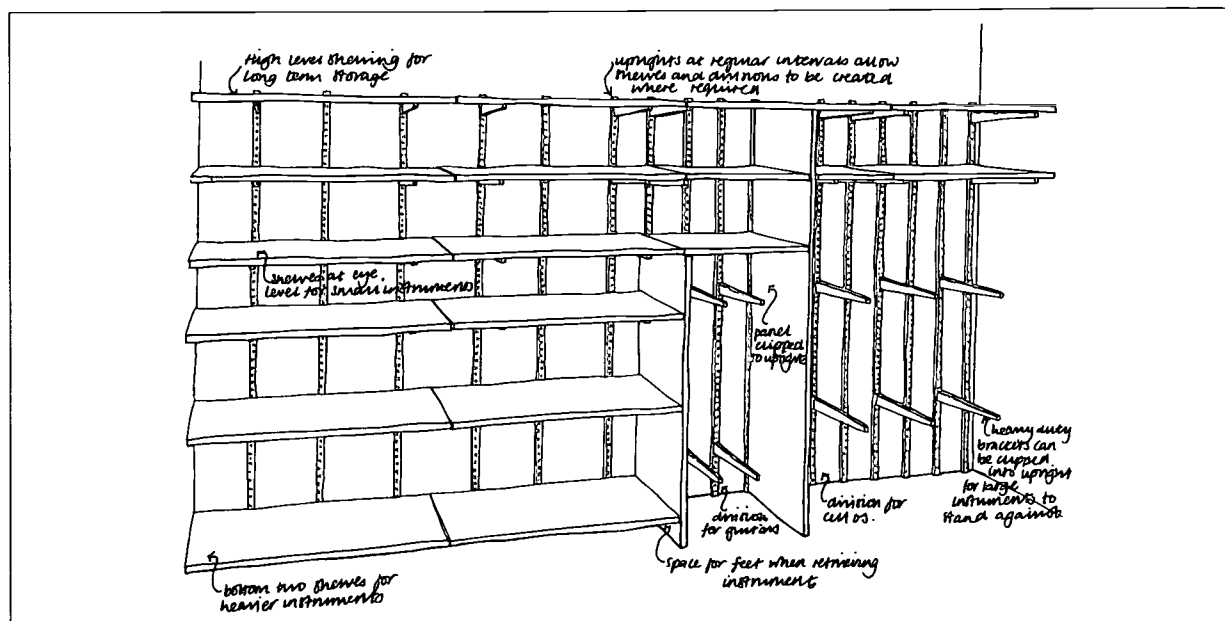 High level shelving for
long term storage
uprights at regular intervals allow
shelves and divisions to be created
where required
shelves at eye
level for small instruments
panel
clipped
to upright
heavy duty
brackets can
be clipped
into upright
for large
instruments to
stand against
division
for guitars
division for
cellos.
space for feet when retrieving
instrument
bottom two shelves for
heavier instruments